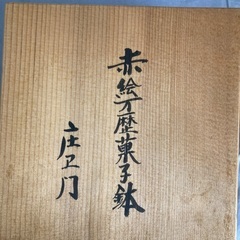 赤絵万歴菓子鉢
庄卫门